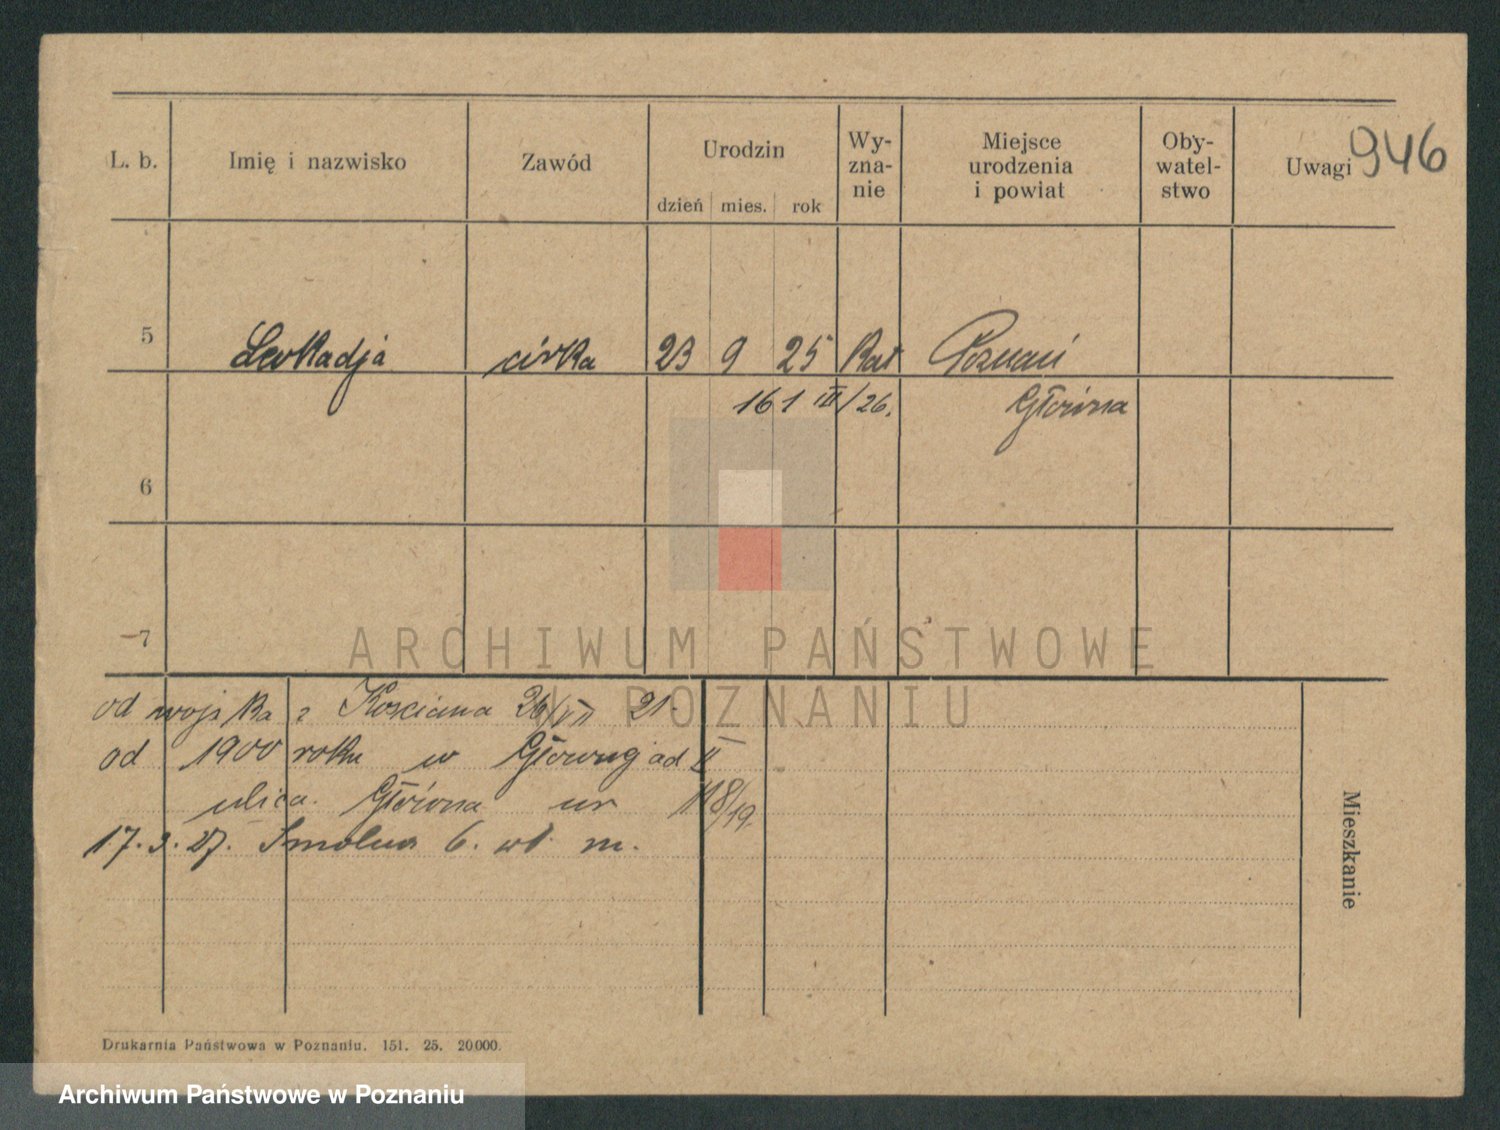 L. b. Imię i nazwisko Zawód Urodzin dzień mies. rok Wy-zna-nie Miejsce urodzenia i powiat Oby-watel-stwo Uwagi 946
5 Leokadja córka 23 9 25 Kat Poznań
161 III/26. Główna
6
7
od wojska z Kościana 26/VII 21.
od 1900 roku w Głównej od II
ulica Główna nr 118/19.
17.3.27. Smolna 6. wł. m.
Mieszkanie
Drukarnia Państwowa w Poznaniu. 151. 25. 20.000.
ARCHIWUM PAŃSTWOWE
W POZNANIU
Archiwum Państwowe w Poznaniu